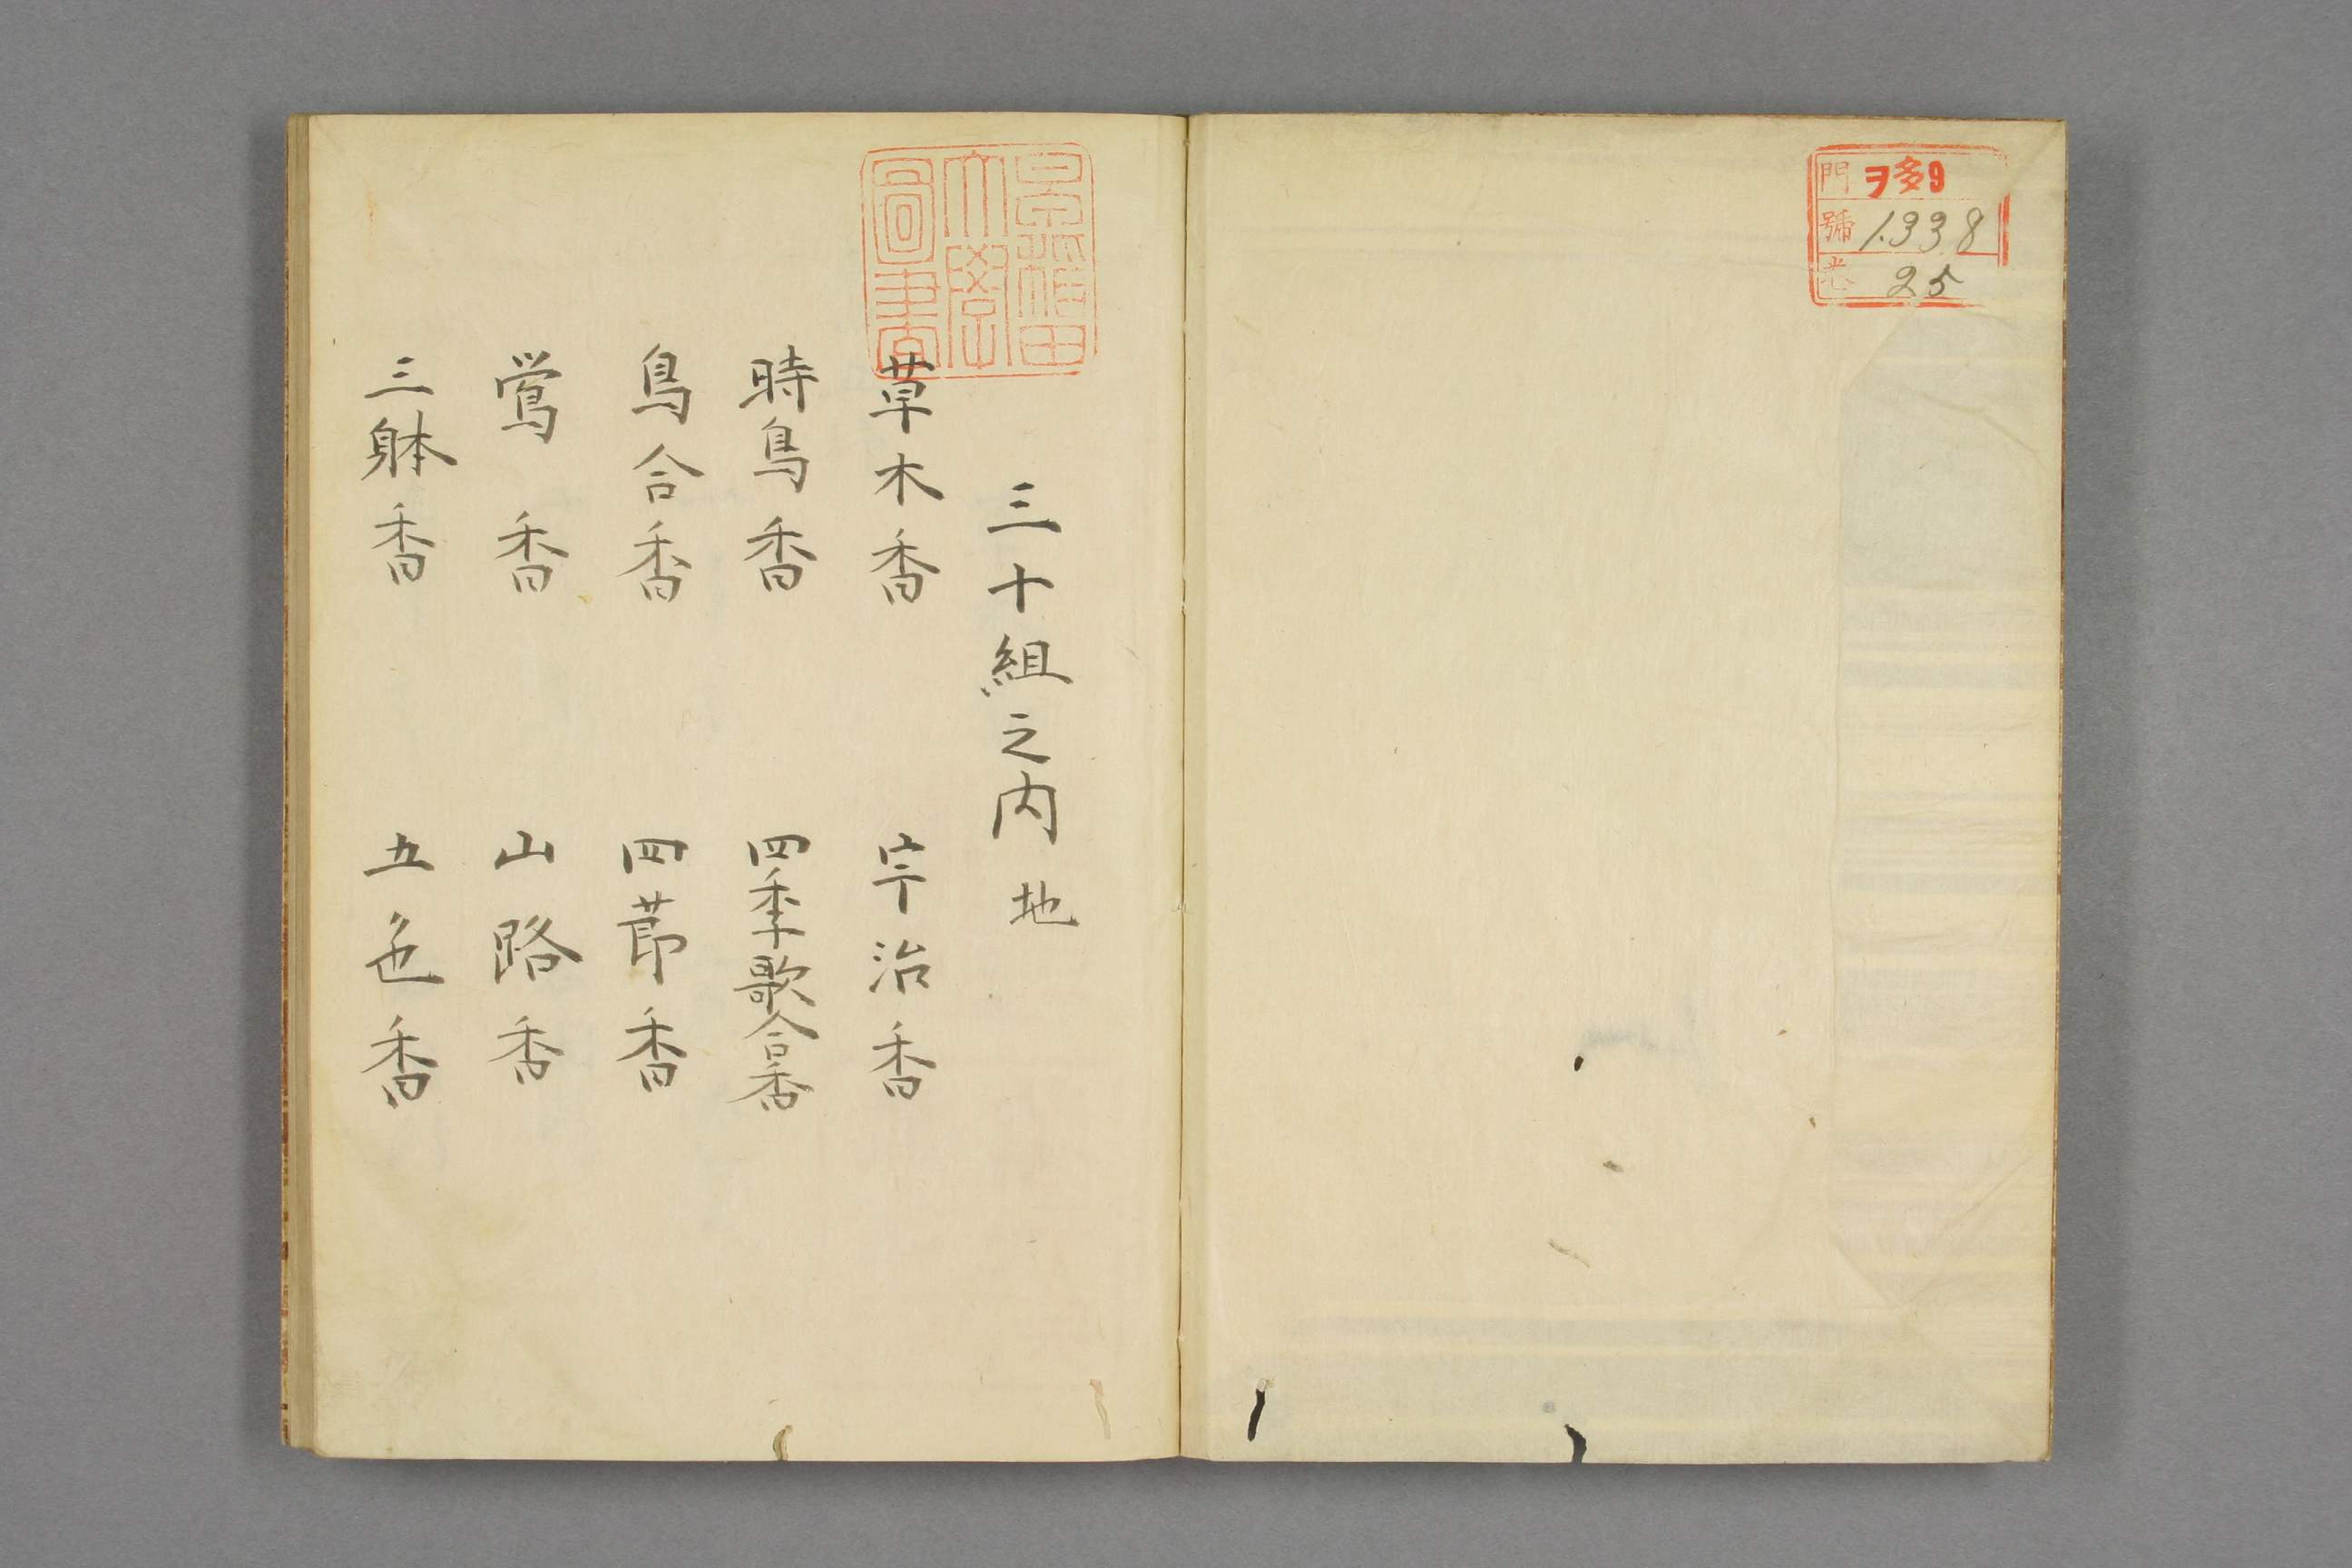 門 ヲ多9
號 1338
巻 25
早稲田
大學
圖書
三十組之内 地
草木香 宇治香
時鳥香 四季歌合香
鳥合香 四節香
鶯香 山路香
三躰香 五色香